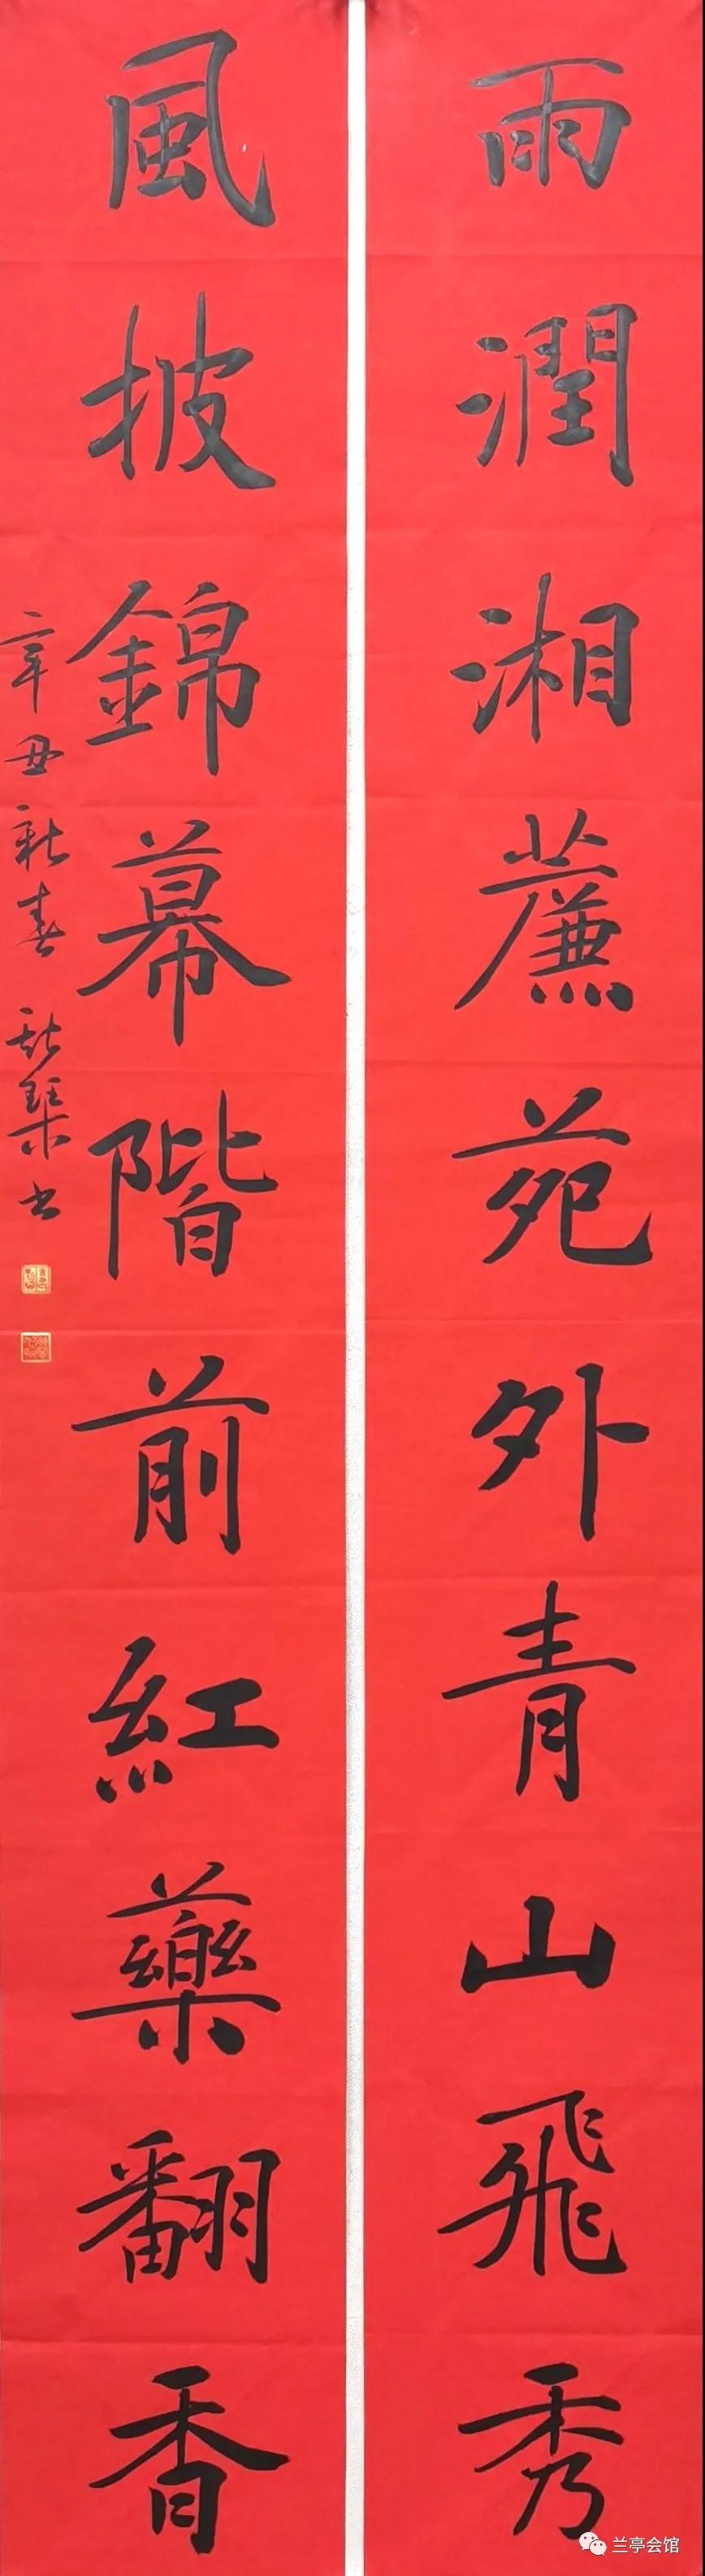 雨潤湘薕苑外青山飛秀
風披錦幕階前紅藥翻香
辛丑新春
书
兰亭会馆